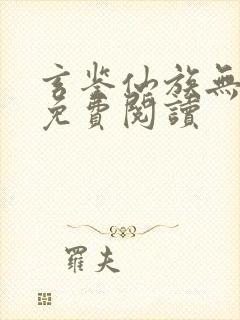 玄鉴仙族無
免費閱讀
羅夫